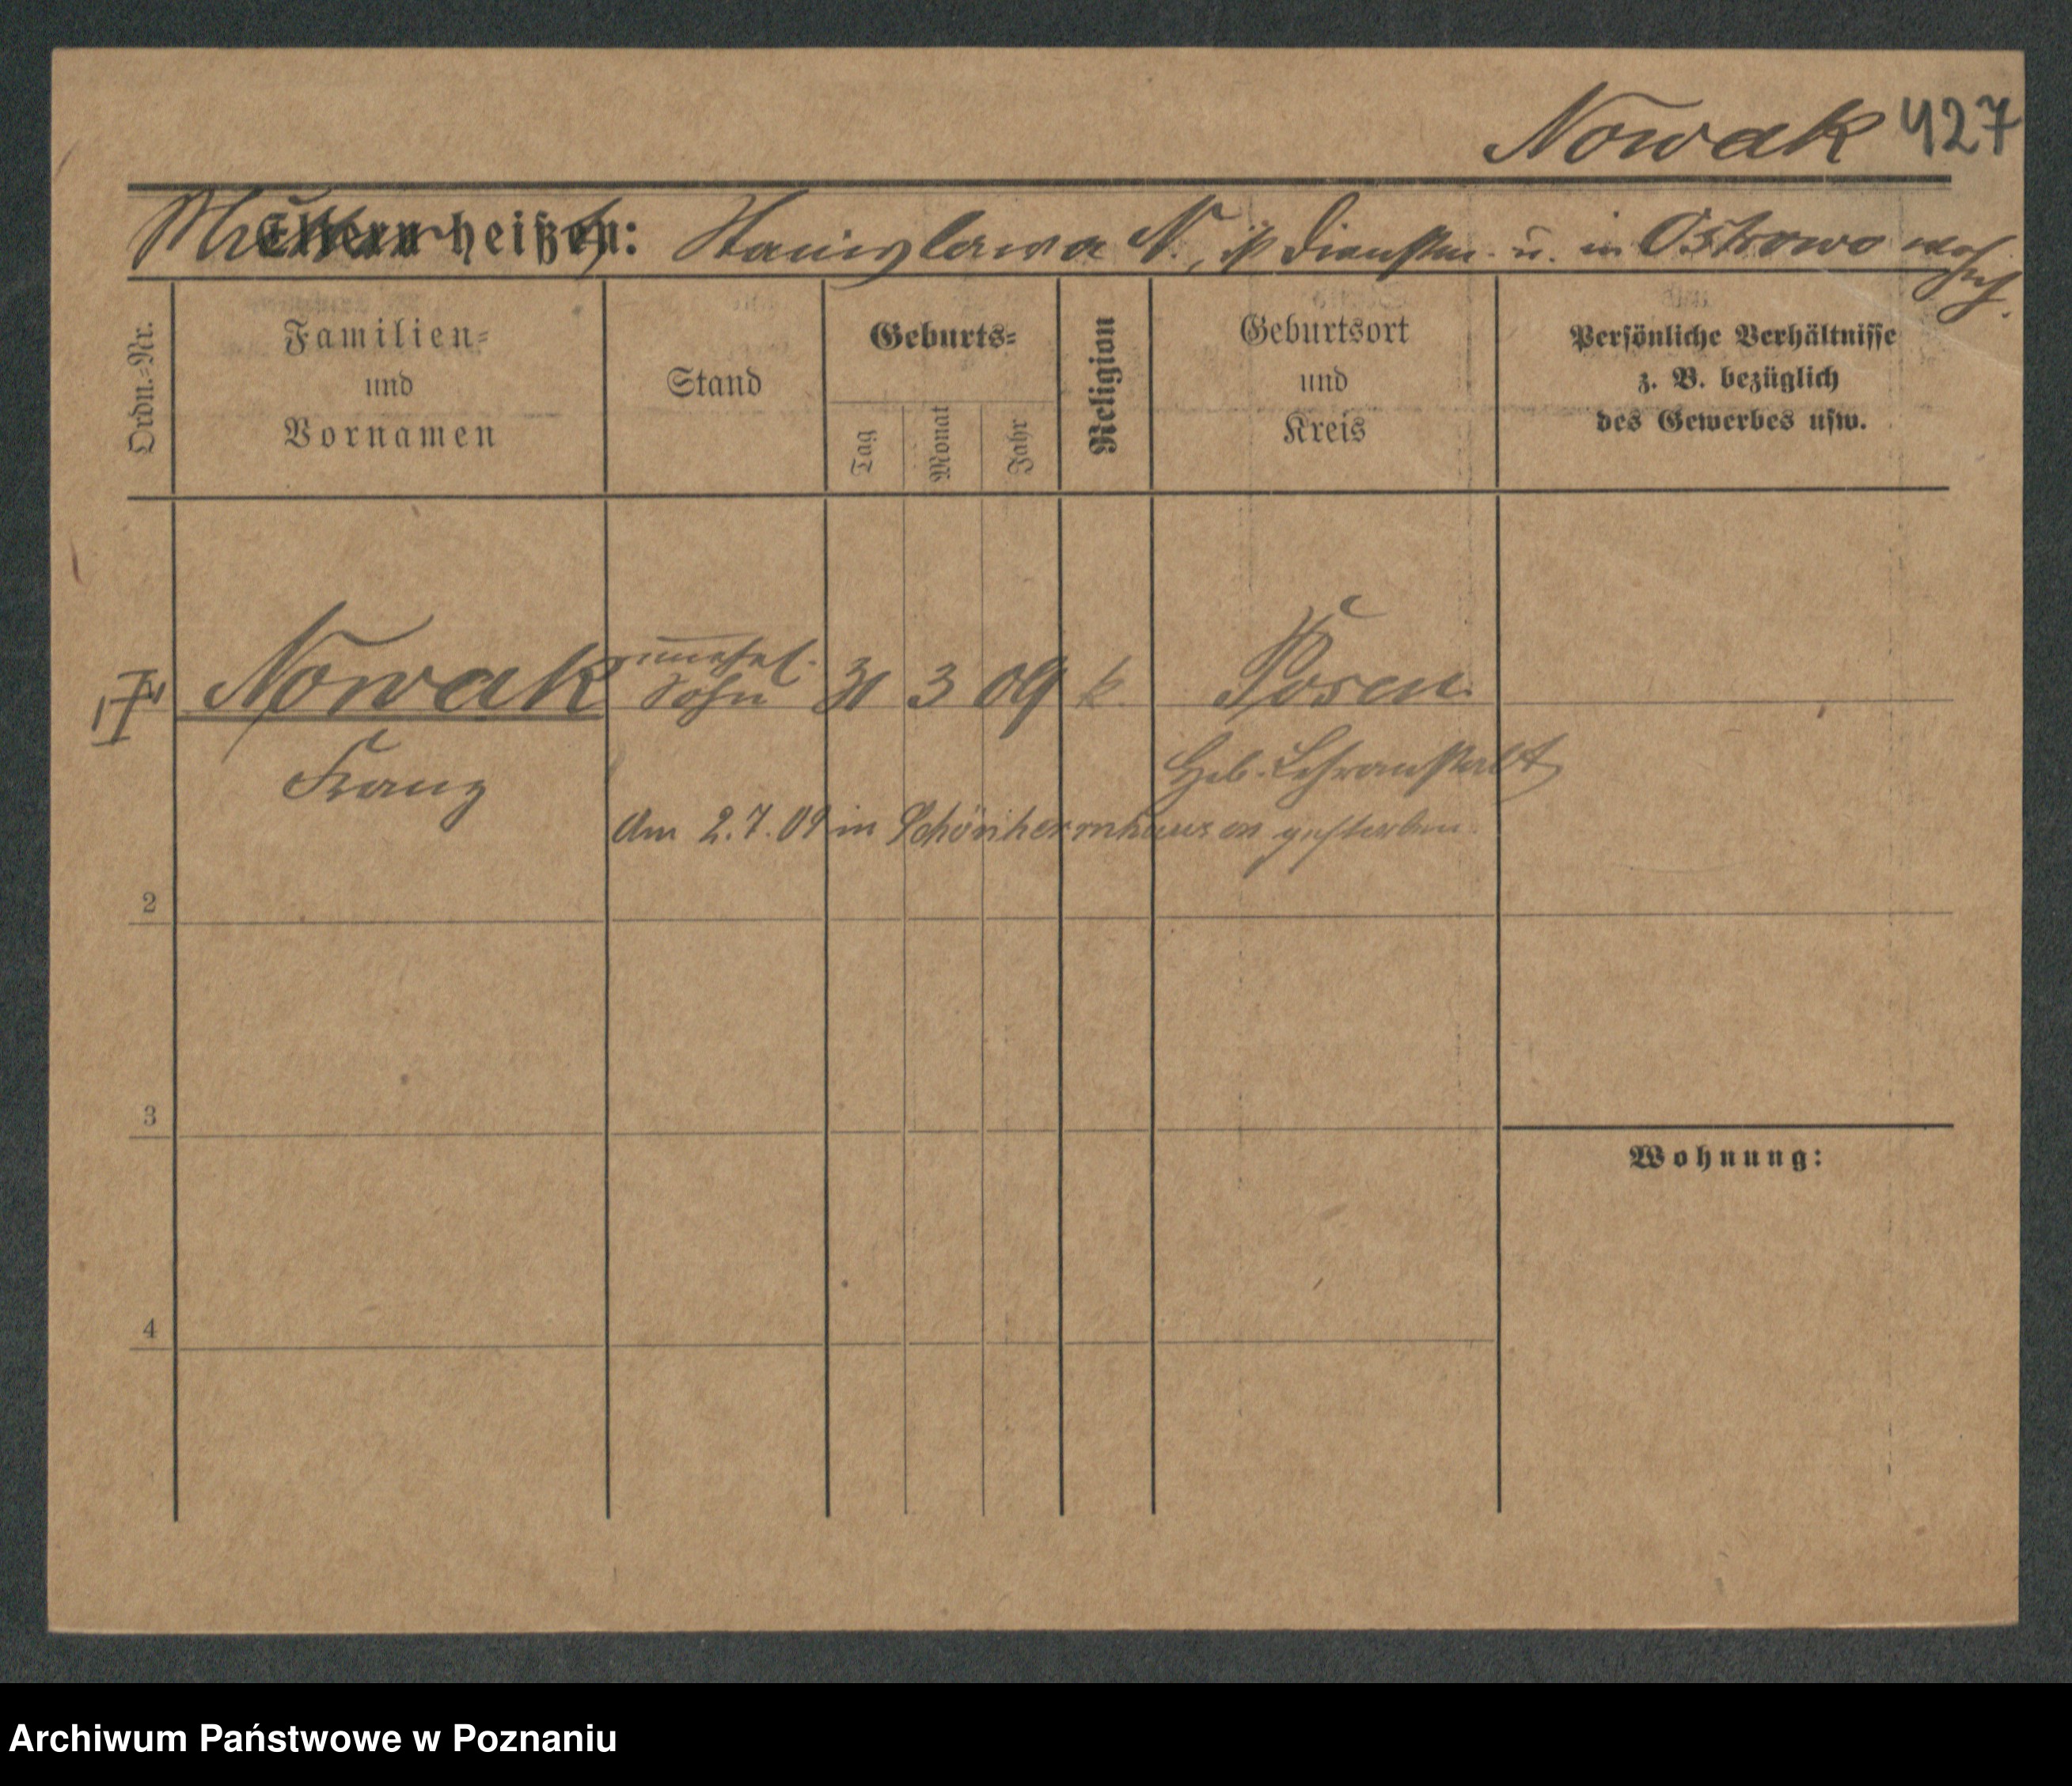 Nowak 427
Mutter heißt: Stanislawa N., ist Dienstm. u. in Ostrowo wohnh.
Ordn.=Nr.
Familien=
und
Vornamen
Stand
Geburts=
Tag
Monat
Jahr
Religion
Geburtsort
und
Kreis
Persönliche Verhältnisse
z. B. bezüglich
des Gewerbes usw.
Nowak unehel. Sohn 31 3 09 k. Posen
Franz
Heb.-Lehranstalt
Am 2.7.09 in Schönherrnhausen gestorben.
2
3
Wohnung:
4
Archiwum Państwowe w Poznaniu